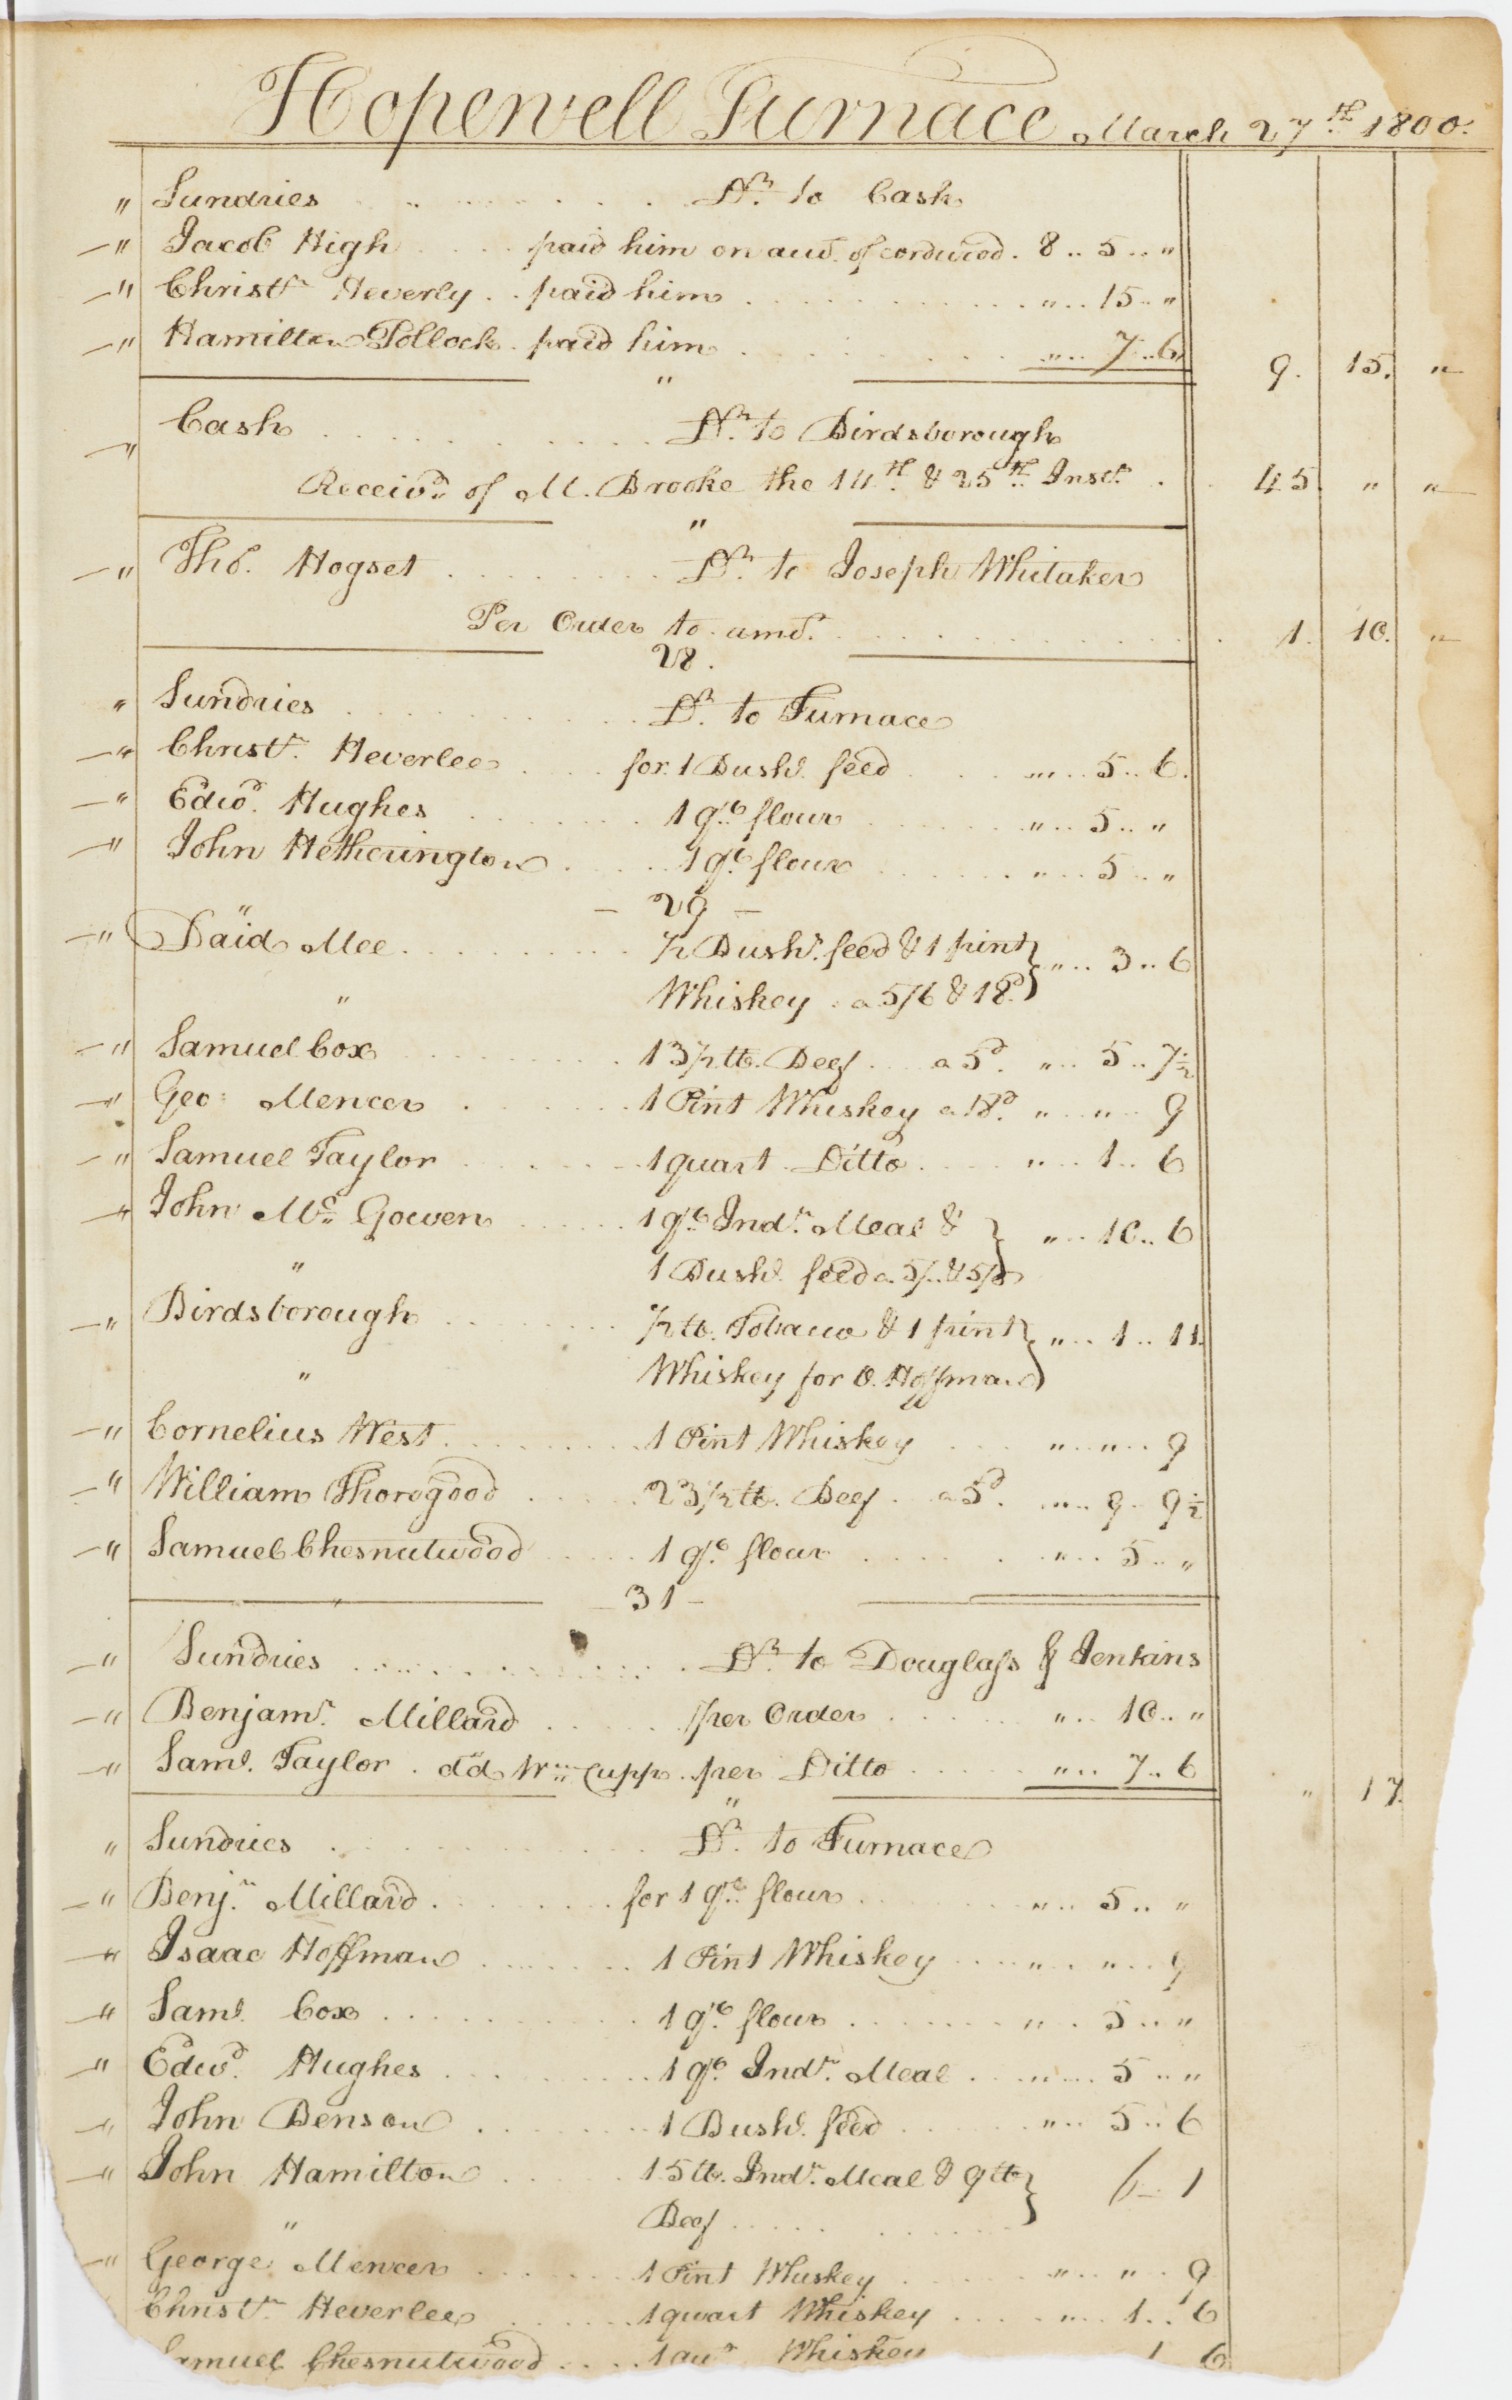 Hopewell Furnace March 27th 1800.
" Sundries . . . . . . . Dr. to Cash
" Jacob High . . . . paid him on accd. of cordwood . 8 .. 5 .. "
" Christr. Heverly . . paid him . . . . . . . . . " .. 15 .. "
" Hamilton Pollock . paid him . . . . . . . . " .. 7 .. 6 9. 15. "
"
" Cash . . . . . . . . . . . Dr. to Birdsborough
Receivd. of M. Brooke the 14th. & 25th. Inst. . . 45. " "
"
" Tho. Hogset . . . . . . . . Dr. to Joseph Whitaker
Per Order to amt. . . . . . . . . . . 1. 10. "
28.
" Sundries . . . . . . . . . . Dr. to Furnace
" Christr. Heverlee . . . for 1 Bushl. feed . . . " .. 5 .. 6.
" Edwd. Hughes . . . . . . 1 qr. flour . . . . . " .. 5 .. "
" John Hetherington . . . . 1 qr. flour . . . . . " .. 5 .. "
" — 29 —
" David Mee . . . . . . . . ½ Bushl. feed & 1 pint } " .. 3 .. 6
" Whiskey . a 5/6 & 18d.
" Samuel Cox . . . . . . . 13½ lb. Beef . . . a 5d. " .. 5 .. 7½
" Geo: Mencer . . . . . . 1 Pint Whiskey a 18d. " .. " .. 9
" Samuel Taylor . . . . . . 1 quart Ditto . . . . " .. 1 .. 6
" John Mc. Gowen . . . . . 1 qr. Indn. Meal & } " .. 10 .. 6
" 1 Bushl. feed a 5/. & 5/6
" Birdsborough . . . . . . . ½ lb. Tobacco & 1 pint } " .. 1 .. 11
" Whiskey for O. Hoffman
" Cornelius West . . . . . . . 1 Pint Whiskey . . . " .. " .. 9
" William Thorogood . . . . 23½ lb. Beef . a 5d. " .. 9 .. 9½
" Samuel Chesnutwood . . . . 1 qr. flour . . . . . " .. 5 .. "
" — 31 —
" Sundries . . . . . . . . . . Dr. to Douglass & Jenkins
" Benjamn. Millard . . . . . per Order . . . . . " .. 10 .. "
" Saml. Taylor . dd Wm. Cupp . per Ditto . . . . " .. 7 .. 6 " 17
"
" Sundries . . . . . . . . . Dr. to Furnace
" Benjn. Millard . . . . . . for 1 qr. flour . . . . . " .. 5 .. "
" Isaac Hoffman . . . . . . 1 Pint Whiskey . . . " . " .. 9
" Saml. Cox . . . . . . . . 1 qr. flour . . . . . . " . 5 .. "
" Edwd. Hughes . . . . . . 1 qr. Indn. Meal . . " .. 5 .. "
" John Benson . . . . . . . 1 Bushl. feed . . . . " .. 5 .. 6
" John Hamilton . . . . . 15 lb. Indn. Meal & 9 lb } 6 — 1
" Beef . . . . .
" George Mencer . . . . . . 1 Pint Whiskey . . . . " .. " .. 9
Christr. Heverlee . . . . . 1 quart Whiskey . . . . " .. 1 .. 6
Samuel Chesnutwood . . . . 1 qur. Whiskey 1 6